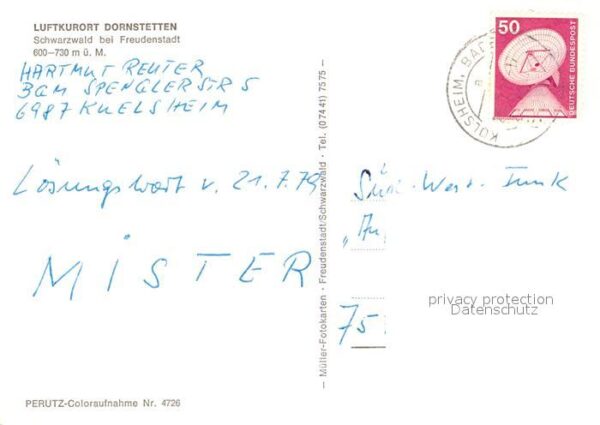 LUFTKURORT DORNSTETTEN
Schwarzwald bei Freudenstadt
600–730 m ü. M.
HARTMUT REUTER
BGM SPENGLERSTR 5
6987 KUELSHEIM
Lösungswort v. 21.7.79
MISTER
PERUTZ-Coloraufnahme Nr. 4726
— Müller-Fotokarten · Freudenstadt/Schwarzwald · Tel. (07441) 7575 —
50
DEUTSCHE BUNDESPOST
KÜLSHEIM, BADEN
Süd-West-Funk
75
privacy protection
Datenschutz